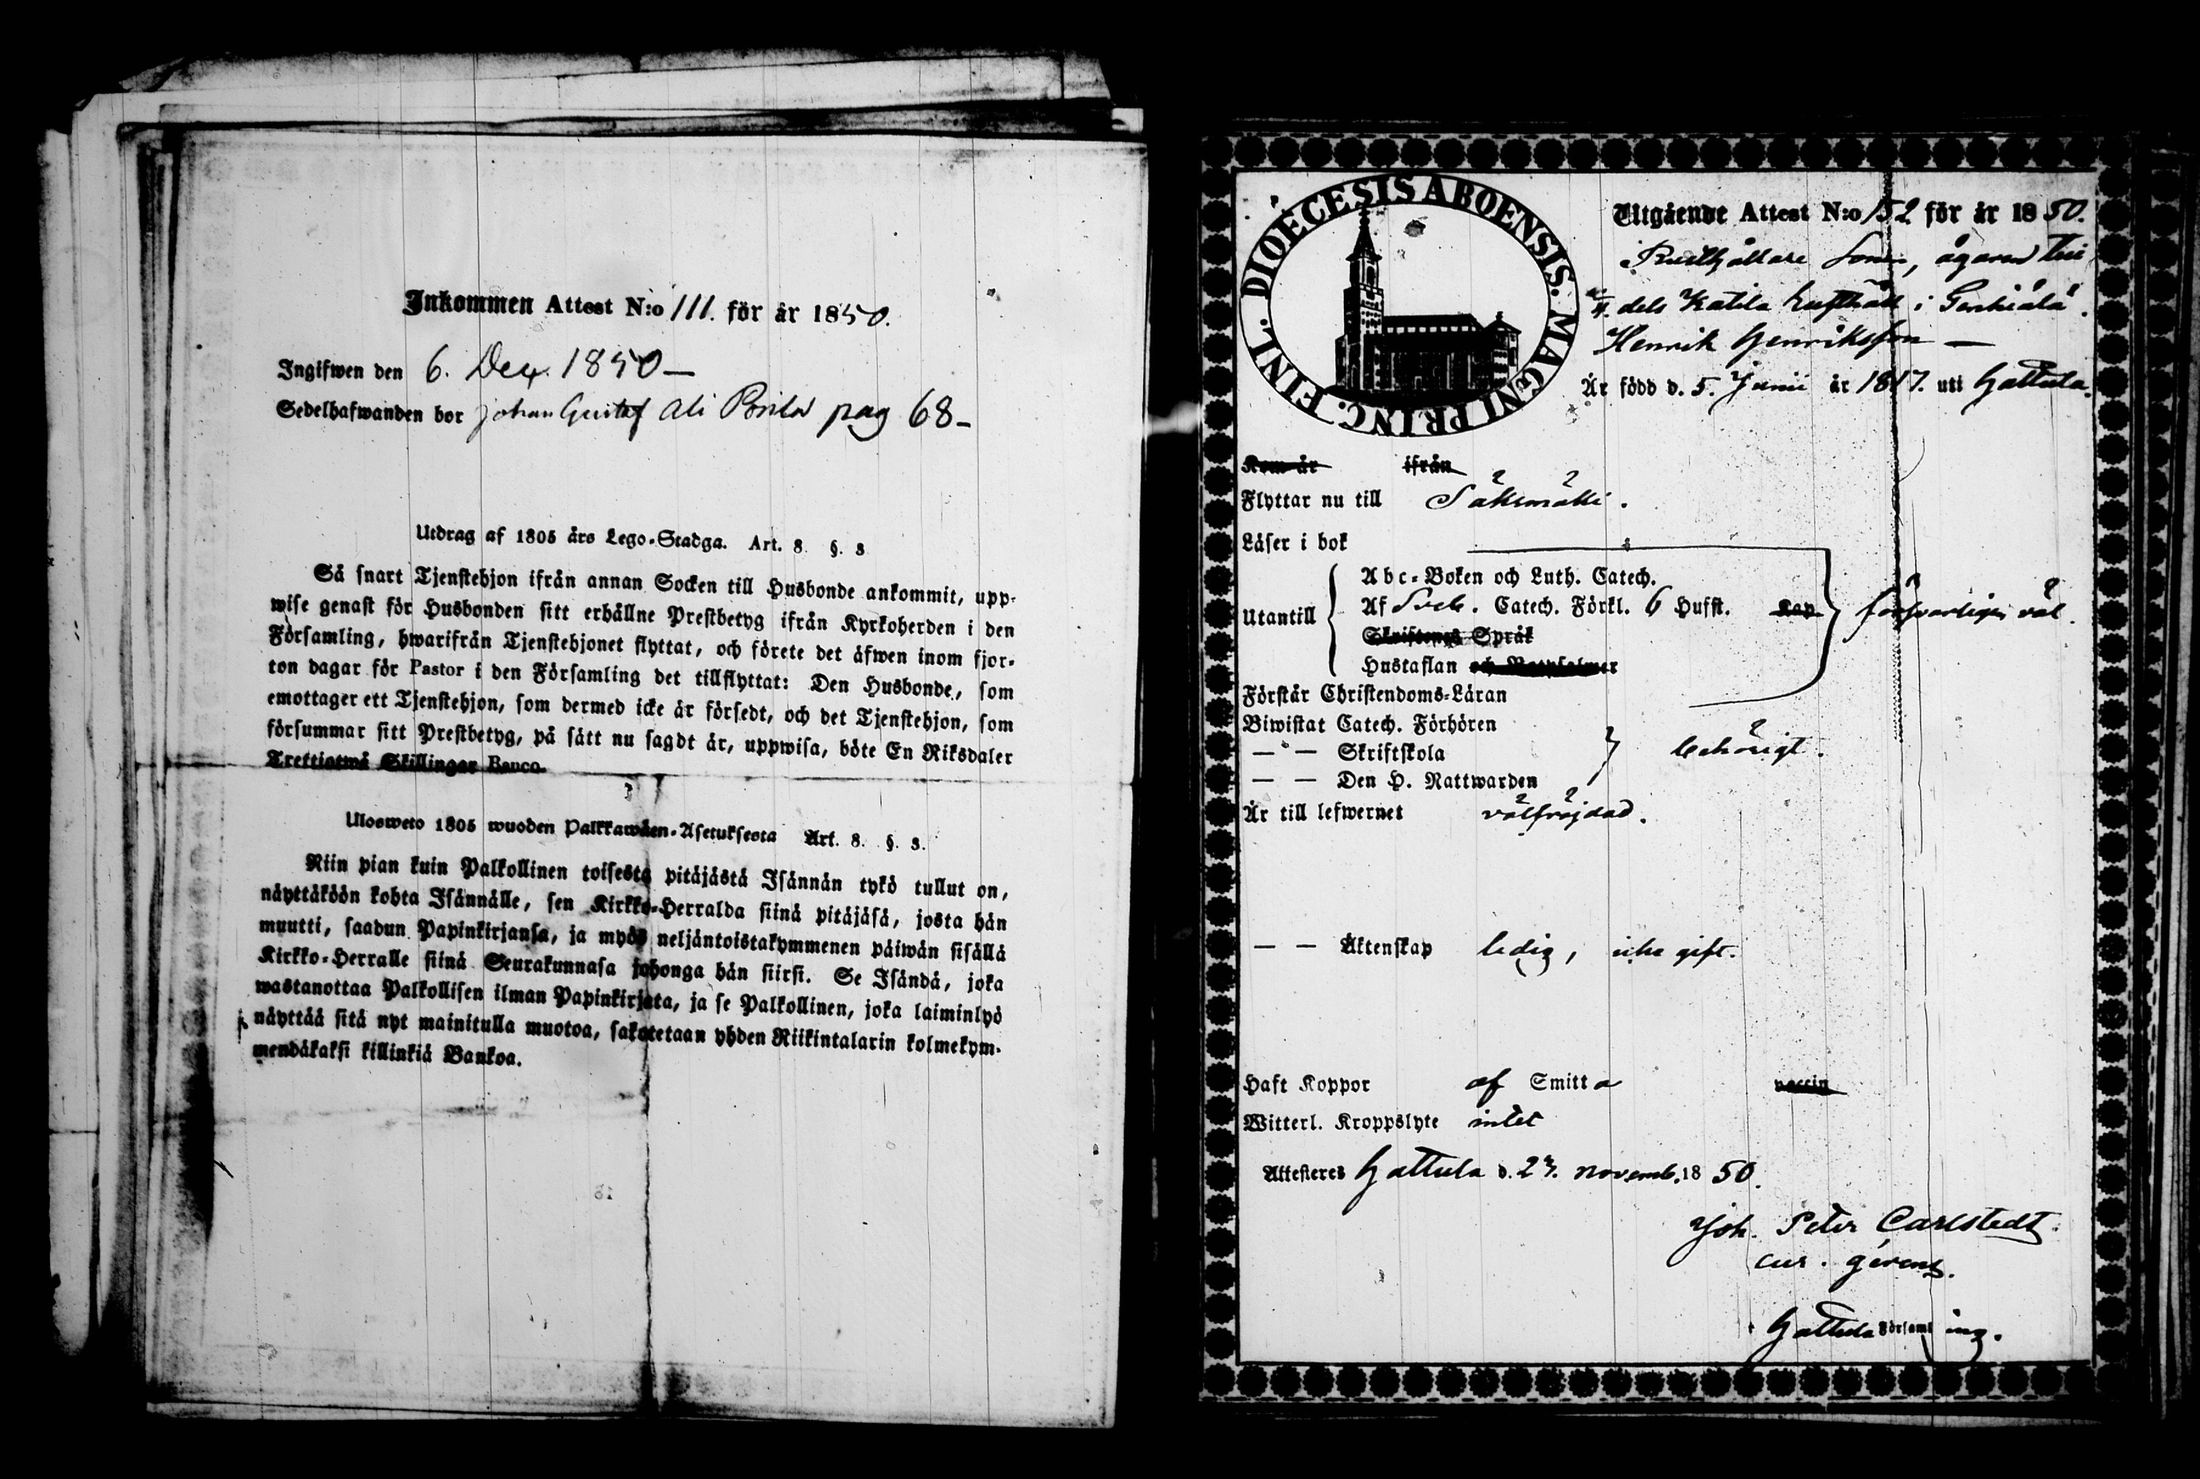 Inkommen Attest N:o 111. för år 1850.
Ingifwen den 6. Dec. 1850 —
Sedelhafwanden bor Johan Gustaf Ali pag 68 —
Utdrag af 1805 års Lego-Stadga. Art. 8. §. 3
Så snart Tjenstehjon ifrån annan Socken till Husbonde ankommit, upp-
wise genast för Husbonden sitt erhållne Prestbetyg ifrån Kyrkoherden i den
Församling, hwarifrån Tjenstehjonet flyttat, och förete det äfwen inom fjor-
ton dagar för Pastor i den Församling det tillflyttat: Den Husbonde, som
emottager ett Tjenstehjon, som dermed icke är försedt, och det Tjenstehjon, som
försummar sitt Prestbetyg, på sätt nu sagdt är, uppwisa, böte En Riksdaler
Trettiotwå Skillingar Banco.
Ulosweto 1805 wuoden Palkkawäen-Asetuksesta Art. 8. §. 3.
Niin pian kuin Palkollinen toisesta pitäjästä Isännän tykö tullut on,
näyttäköön kohta Isännälle, sen Kirkko-Herralda siinä pitäjäsä, josta hän
muutti, saadun Papinkirjansa, ja myös neljäntoistakymmenen päiwän sisällä
Kirkko-Herralle siinä Seurakunnasa johonga hän siirsi. Se Isändä, joka
wastanottaa Palkollisen ilman Papinkirjata, ja se Palkollinen, joka laiminlyö
näyttää sitä nyt mainitulla muotoa, sakotetaan yhden Riikintalarin kolmekym-
mendäkaksi killinkiä Bankoa.
DIOECESIS ABOENSIS. MAGNI PRINC. FINL.
Utgående Attest N:o 152 för år 1850.
Rusthållare Sonen, ägaren till
dels Katila i
Henrik Henriksson —
Är född d. 5. Junii år 1817. uti Hattula.
Kom år ifrån
Flyttar nu till Sääksmäki.
Läser i bok
Abc-Boken och Luth. Catech.
Utantill Af Sveb. Catech. Förkl. 6 Hufst. Kap
Skriftenes Språk
Hustaflan och Botpsalmer
försvarligen väl.
Förstår Christendoms-Läran
Biwistat Catech. Förhören
— — Skriftskola behörigt.
— — Den H. Nattwarden
Är till lefwernet välfräjdad.
— — Äktenskap ledig, icke gift.
Haft Koppor af Smitta vaccin
Witterl. Kroppslyte intet
Attesteres Hattula d. 27. novemb. 1850.
Joh. Peter Carlstedt.
cur. gerens.
Hattula Församling.